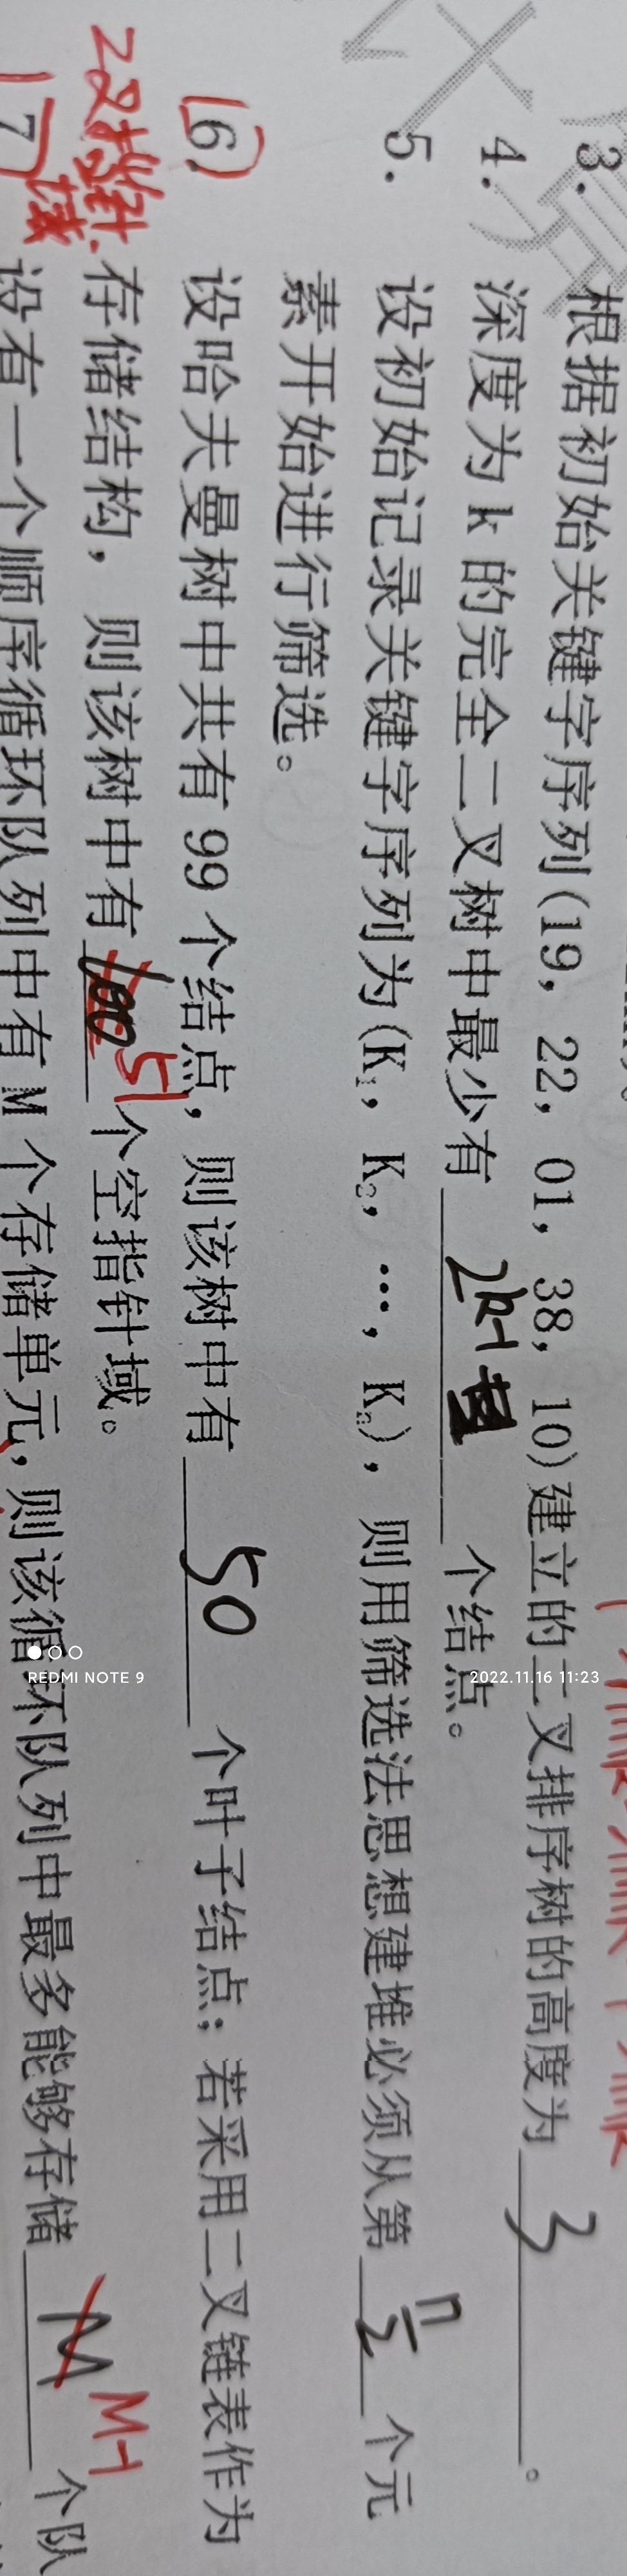 3. 根据初始关键字序列(19, 22, 01, 38, 10)建立的二叉排序树的高度为 3 。
4. 深度为 k 的完全二叉树中最少有 2k-1 个结点。
5. 设初始记录关键字序列为(K₁, K₂, …, Kₙ), 则用筛选法思想建堆必须从第 n/2 个元
素开始进行筛选。
6. 设哈夫曼树中共有 99 个结点, 则该树中有 50 个叶子结点; 若采用二叉链表作为
存储结构, 则该树中有 100 51 个空指针域。
2叉指针
域
7 设有一个顺序循环队列中有 M 个存储单元, 则该循环队列中最多能够存储 M M-1 个队
REDMI NOTE 9
2022.11.16 11:23